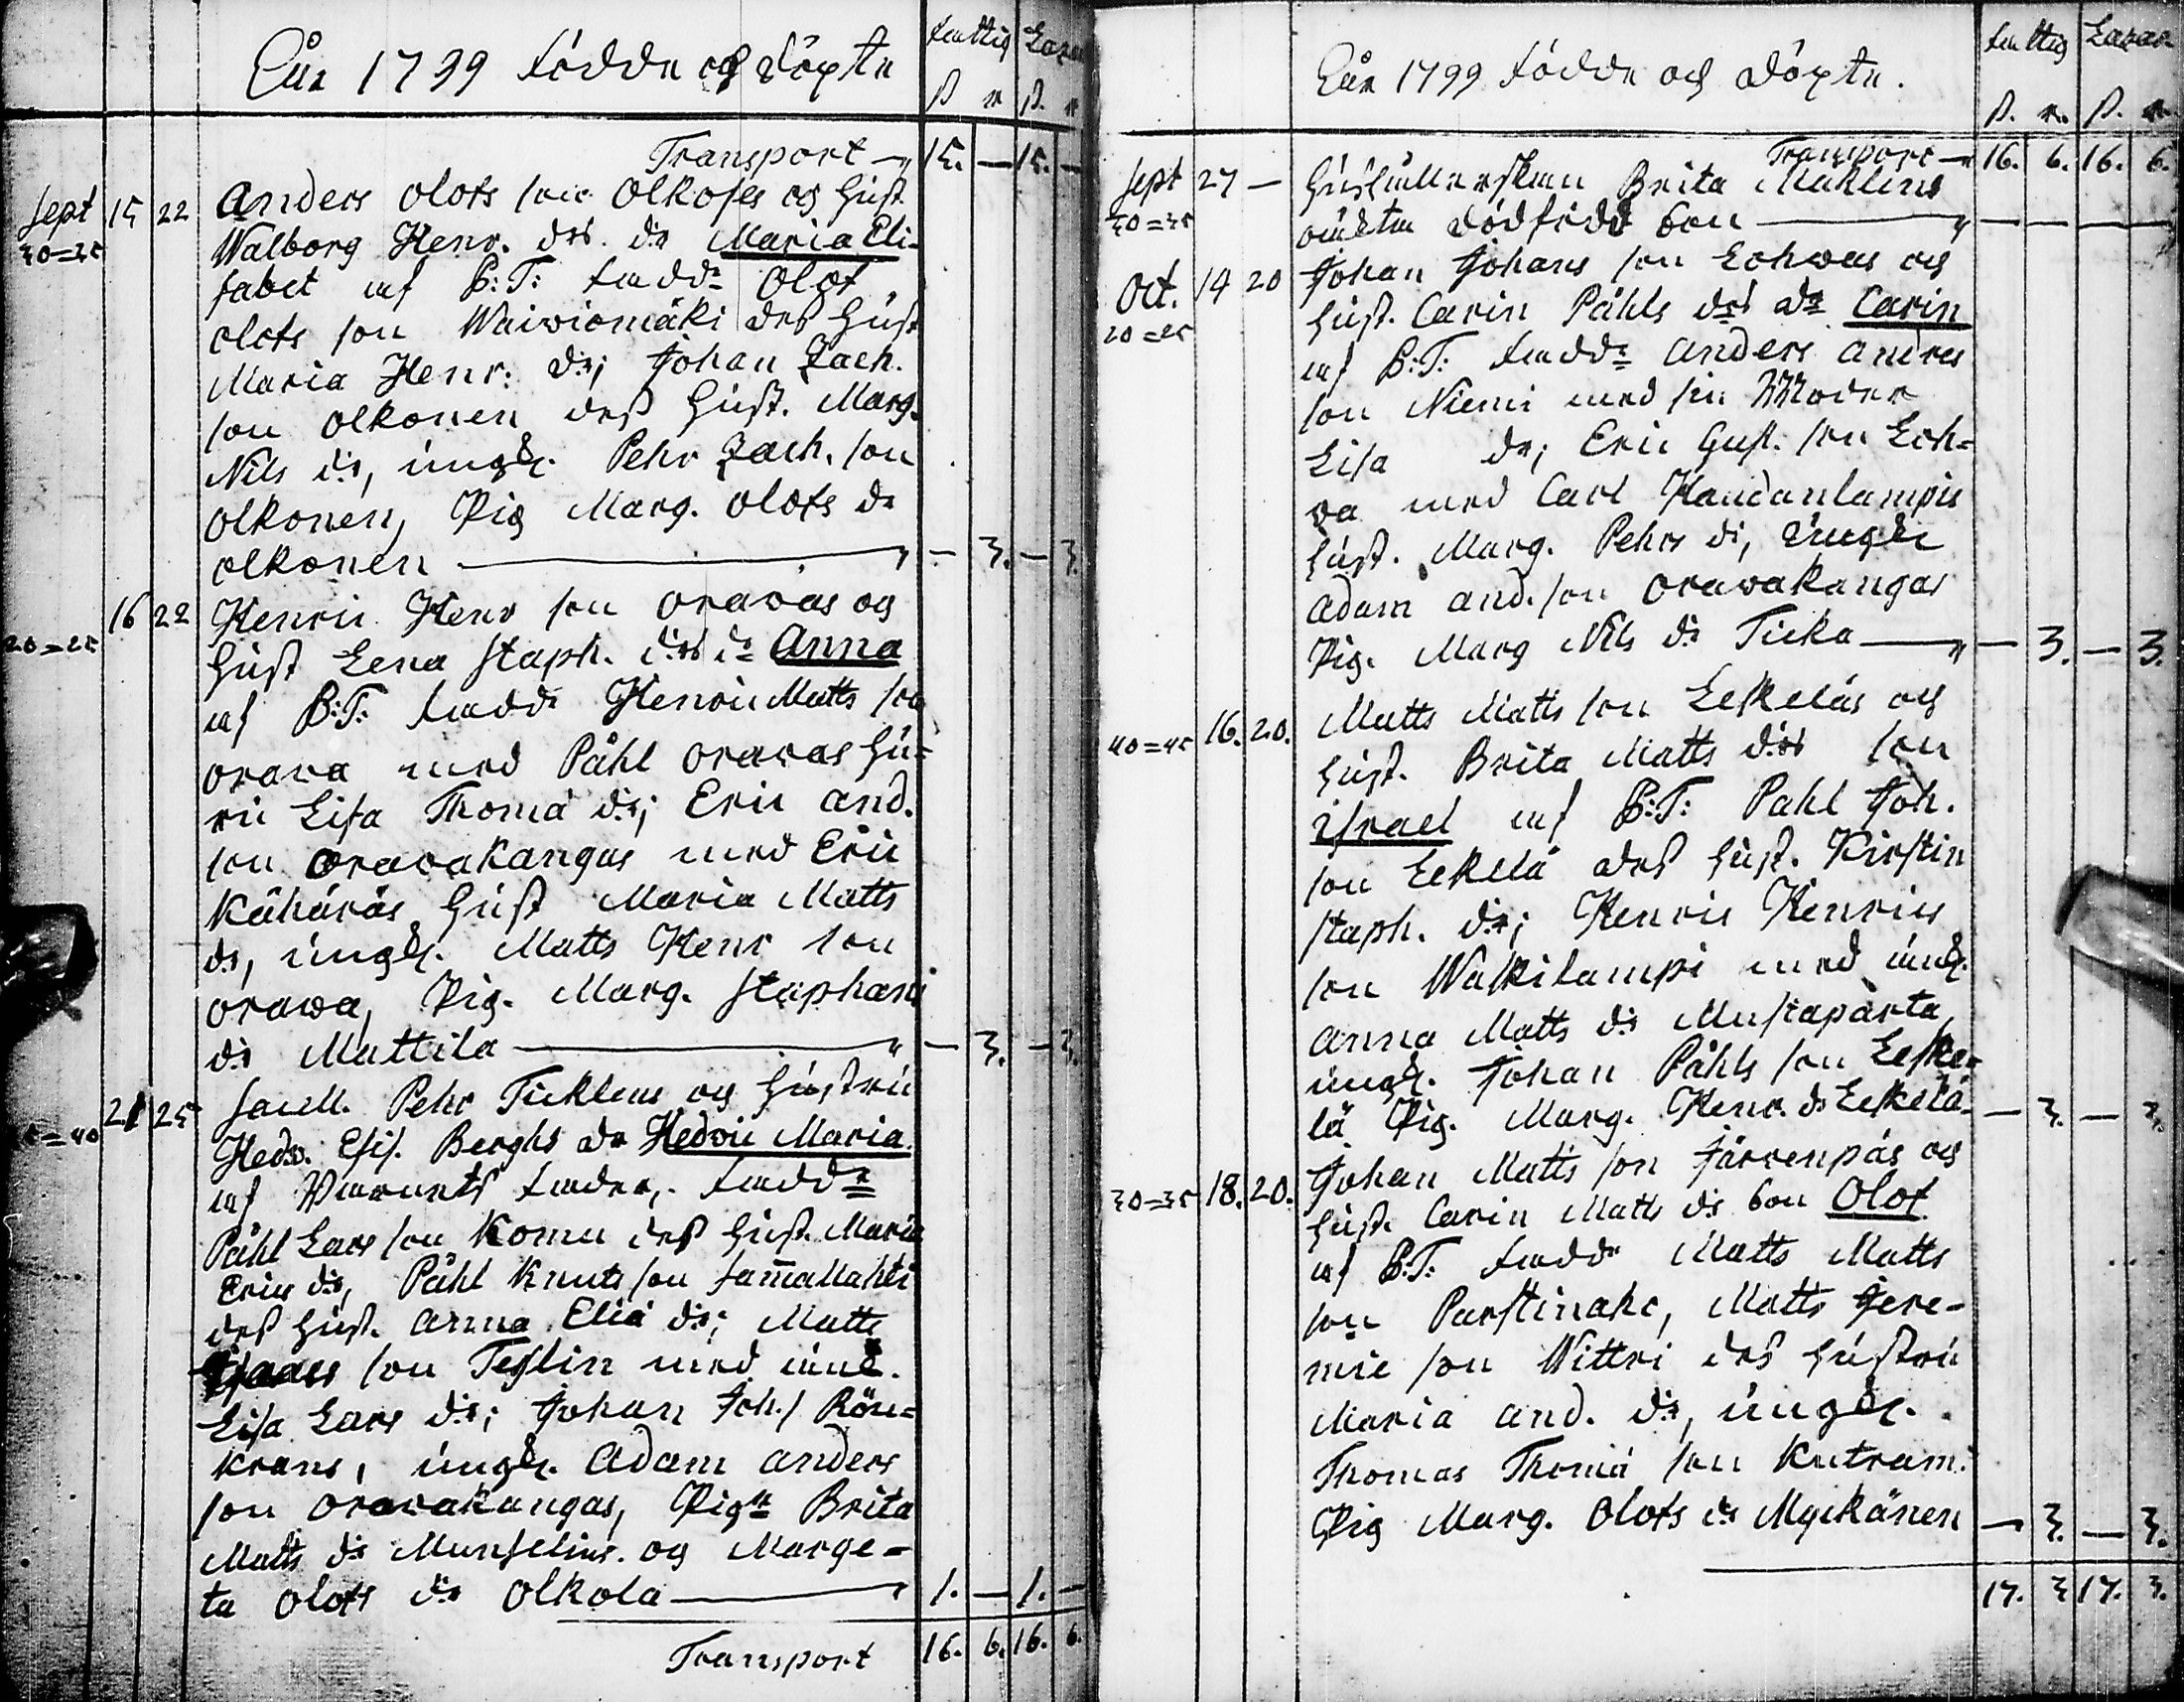 Åhr 1799 födde och döpte
Fattig Lazar
ß r ß. r
Transport — 15. — 15. —
Sept 15 22 Anders Olofs son Olkoses og Hust
30=35 Walborg Henr. drs dr Maria Eli-
sabet af P:T: fadd: Olof
Olofs son Waivionmäki deß Hust
Maria Henr: dr; Johan Zach.
son Olkonen deß Hust. Marg.
Nils dr, ungk. Pehr Zach. son
Olkonen, Pig Marg. Olofs dr
Olkonen — 3. — 3.
16 22 Henric Henr son Oravas og
20=25 Hust Lena Staph. drs dr Anna
af P:T: fadd: Henric Matts son
Orava med Påhl Oravas Hu-
ru Lisa Thomä dr; Eric And.
son Oravakangas med Eric
Kähäräs Hust Maria Matts
dr, ungk. Matts Henr son
Orawa, Pig. Marg. Staphans
dr Mattila — 3. — 3.
21 25 Pehr Ticklens og Hustru
=40 Hedv. Berghs dr Hedvic Maria
af fader, fadd:
Påhl Lars son Komu deß Hust. Maria
Erics dr, Påhl Knuts son Sammallahti
deß Hust. Anna Eliä dr; Matts
son Teslin med
Lisa Lars dr; Johan Joh. s Rön=
krans, ungk. Adam Anders
son Oravakangas, Pigr Brita
Matts dr Munselius. og Marge=
ta Olofs dr Olkola — 1. — 1. —
Transport 16. 6. 16. 6.
Åhr 1799 födde och döpte.
Fattig Lazar
ß. r. ß. r.
Transport — 16. 6. 16. 6.
Sept 27 — Brita Mahlens
30=35 oäkta dödfödd son — — — —
Oct. 14 20 Johan Johans son Lohwas og
20=25 Hust. Carin Påhls drs dr Carin
af P:T: fadd: Anders Anders
son Niemi med sin Moder
Lisa dr; Eric Gust. son Loh=
va med Carl Haudanlampis
Hust. Marg. Pehrs dr, Ungk
Adam And. son Oravakangas
Pig. Marg Nils dr Ticka — 3. — 3.
16. 20. Matts Matts son Eskeläs og
40=45 Hust. Brita Matts drs son
Israel af P:T: Pahl Joh.
son Eskelä deß Hust. Kirstin
Staph. dr; Henric Henrics
son Walkilampi med
Anna Matts dr Mustaparta,
ungk. Johan Påhls son Eske=
lä Pig. Marg. Henr. dr Eskelä — 3. — 3.
18. 20. Johan Matts son Järvenpäs og
30=35 Hust. Carin Matts dr son Olof
af P:T: fadd: Matts Matts
son Parstinahc, Matts Jere-
mie son Wittri deß Hustru
Maria And. dr, ungk.
Thomas Thomä son Kutram:
Pig Marg. Olofs dr Myikänen — 3. — 3.
17. 3 17. 3.